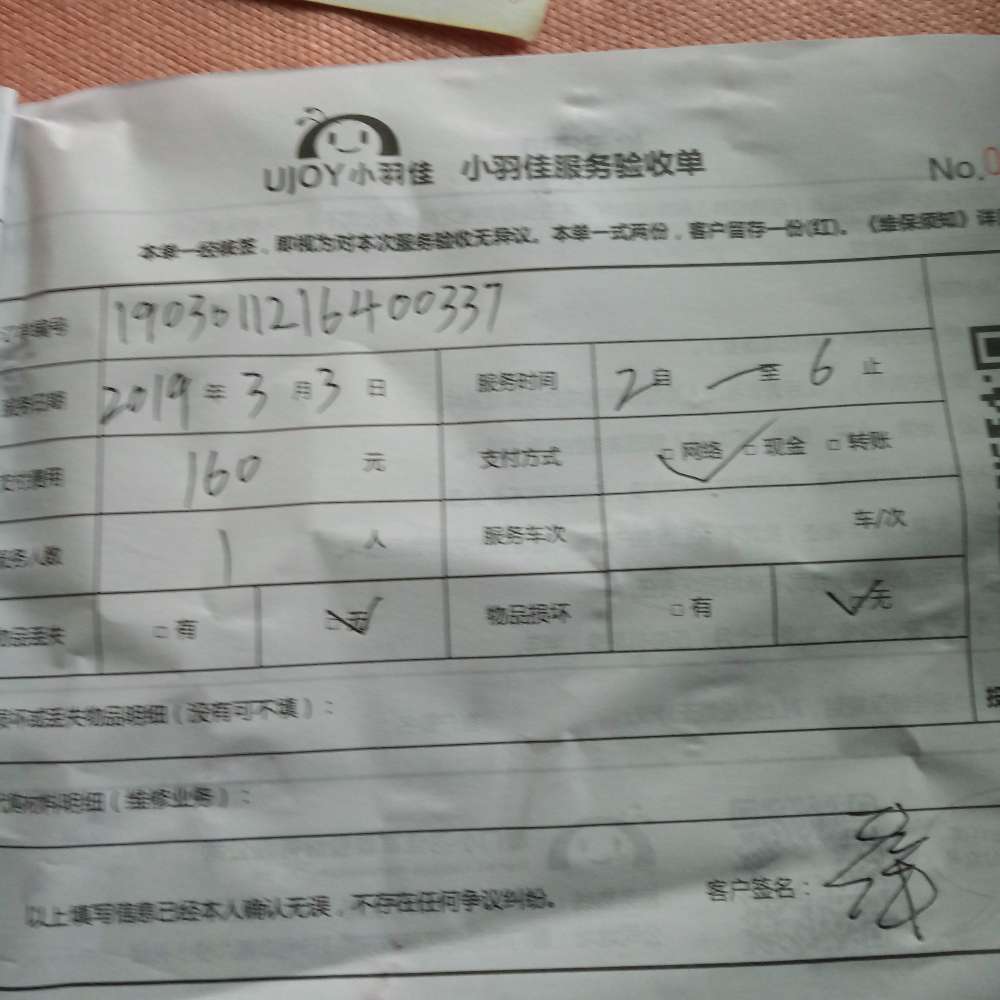 UJOY小羽佳 小羽佳服务验收单 No.0
本单一经签签，即视为对本次服务验收无异议。本单一式两份，客户留存一份(红)。《维保须知》详
订单编号 190301121640​0337
服务日期 2019年3月3日 服务时间 2自 至 6 止
支付费用 160 元 支付方式 □网络 □现金 □转账
服务人数 1 人 服务车次 车/次
物品丢失 □有 □无 物品损坏 □有 □无
损坏或丢失物品明细（没有可不填）：
代购材料明细（维修业务）：
以上填写信息已经本人确认无误，不存在任何争议纠纷。 客户签名：